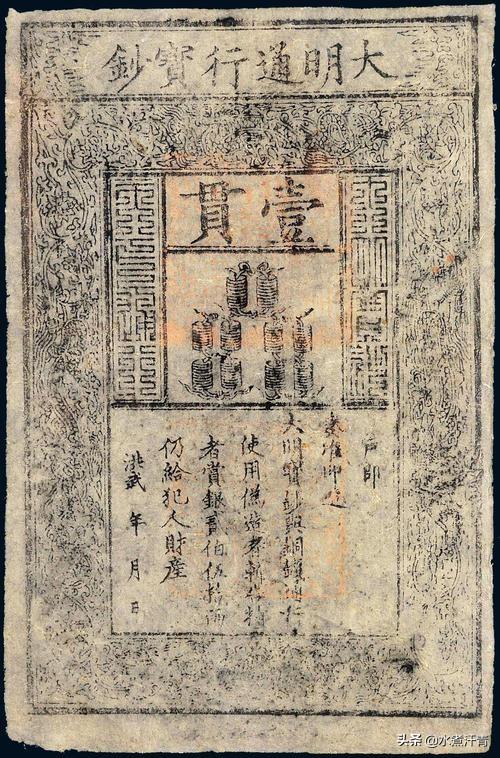 大明通行寶鈔
壹貫
大明寶鈔
天下通行
戶部
奏准印造
大明寶鈔與銅錢通行
使用偽造者斬告捕
者賞銀貳伯伍拾兩
仍給犯人財產
洪武 年 月 日
头条 @水煮汗青